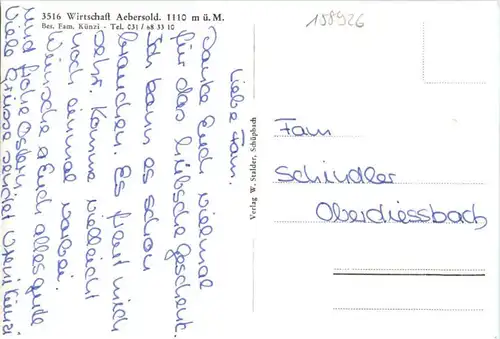 3516 Wirtschaft Aebersold. 1110 m ü. M.
Bes. Fam. Künzi - Tel. 031 / 68 33 10
158926
Liebe Fam.
Danke Euch vielmal
für das hübsche Geschenk.
Ich kann es schon
brauchen. Es freut mich
sehr. Komme vielleicht
noch einmal vorbei.
Wünsche Euch alles gute
und frohe Ostern.
Viele Grüsse sendet Künzi
Verlag W. Stalder, Schüpbach
Fam
Schindler
Oberdiessbach